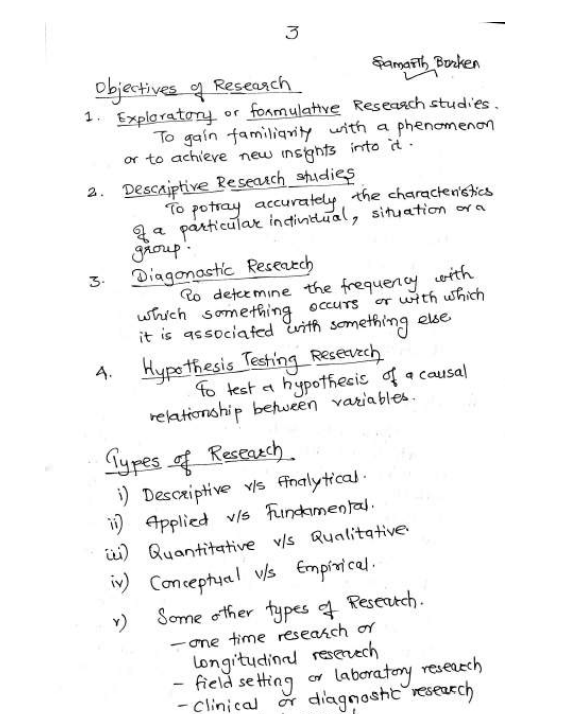 3
Samarth Borken
Objectives of Research
1. Exploratory or formulative Research studies.
To gain familiarity with a phenomenon
or to achieve new insights into it.
2. Descriptive Research studies
To potray accurately the characteristics
of a particular individual, situation or a
group.
3. Diagonostic Research
To determine the frequency with
which something occurs or with which
it is associated with something else
4. Hypothesis Testing Research
To test a hypothesis of a causal
relationship between variables.
Types of Research
i) Descriptive v/s Analytical.
ii) Applied v/s Fundamental.
iii) Quantitative v/s Qualitative.
iv) Conceptual v/s Empirical.
v) Some other types of Research.
- one time research or
longitudinal research
- field setting or laboratory research
- clinical or diagnostic research